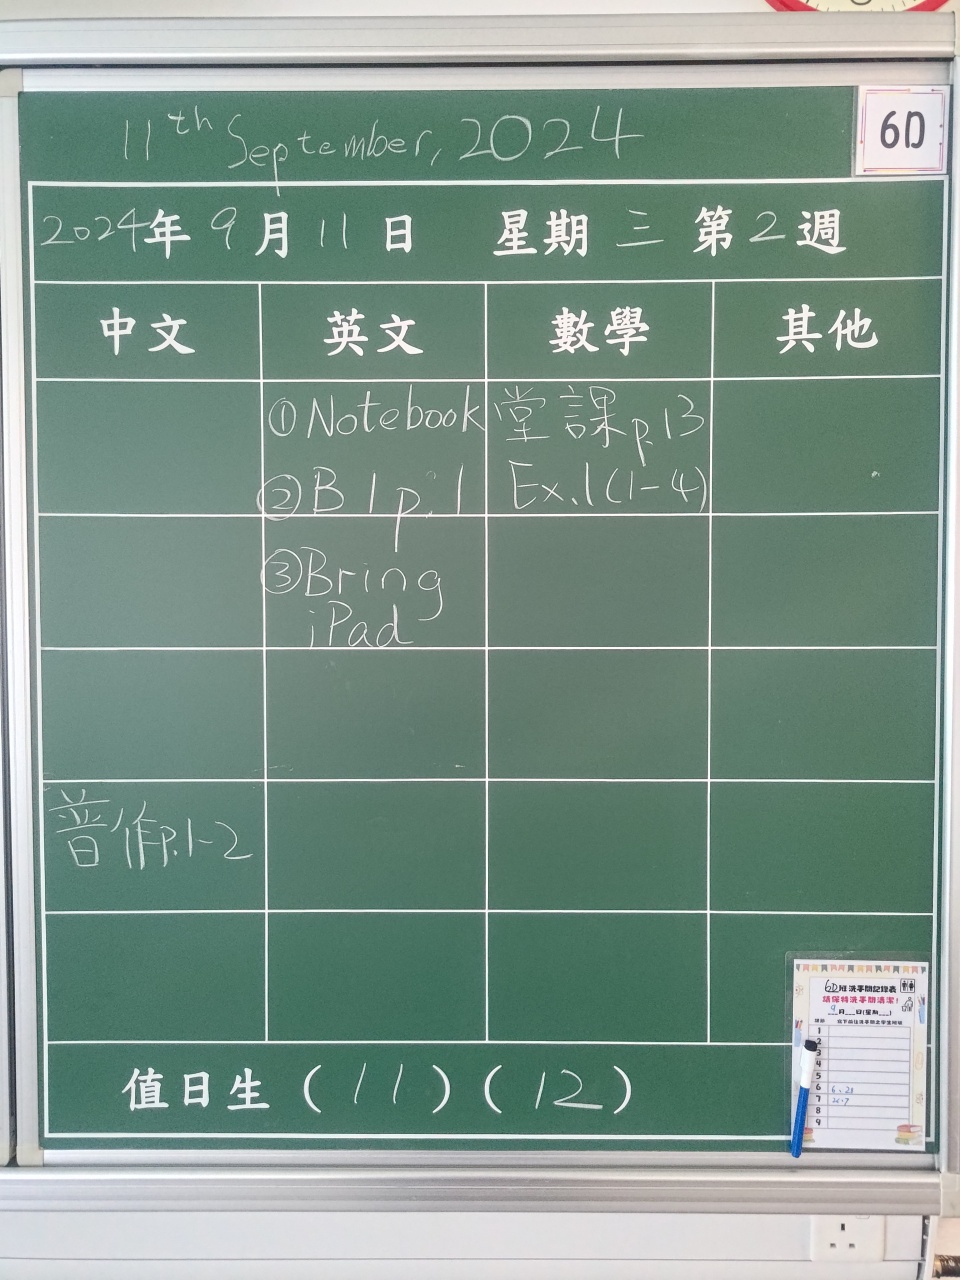 11th September, 2024
6D
2024年9月11日 星期三 第2週
中文 英文 數學 其他
①Notebook 堂課p.13
②B1p.1 Ex.1(1-4)
③Bring
iPad
普作p.1-2
6D班洗手間記錄表
請保持洗手間清潔!
9月__日(星期__)
1
2
3
4
5
6 6、23
7
8
9
值日生(11)(12)